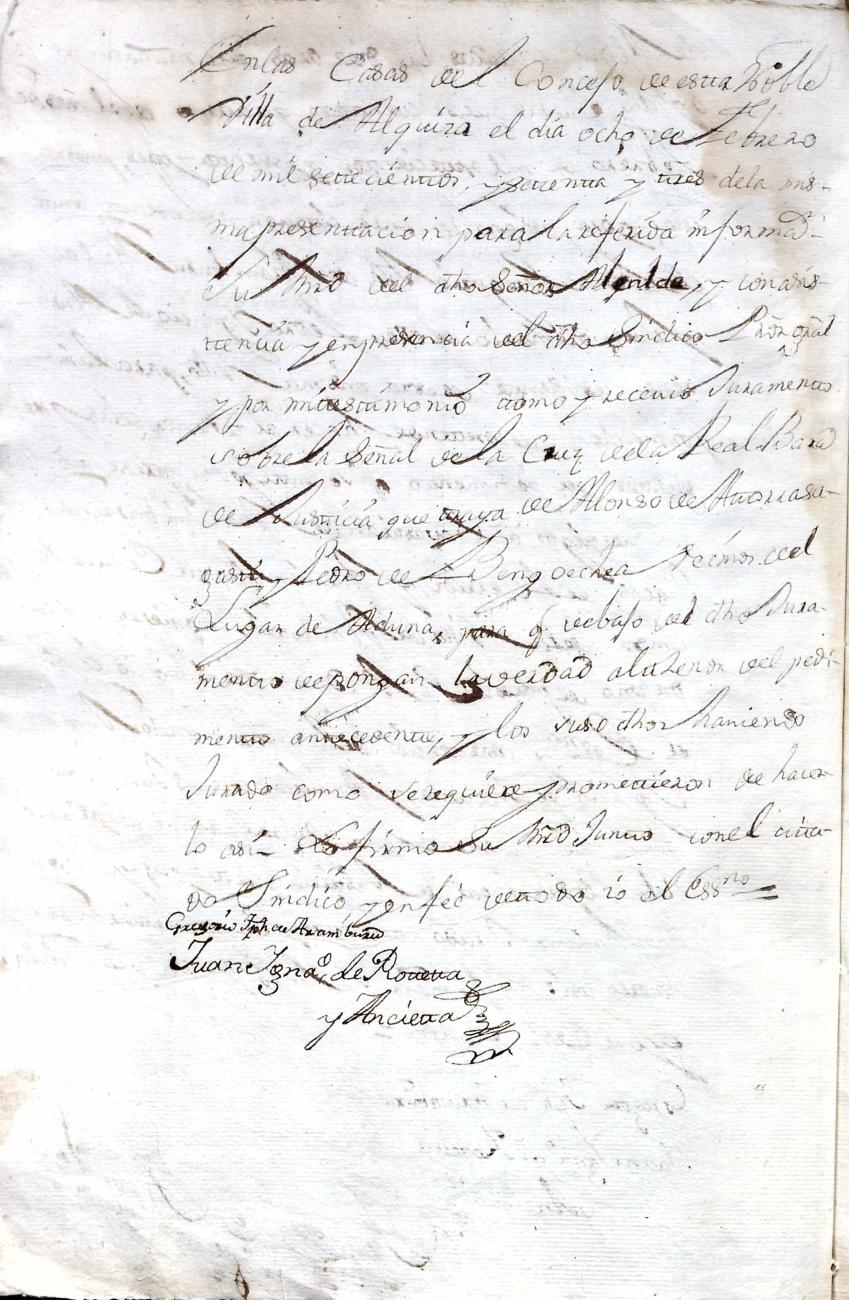 En las Casas del Concejo de esta Noble
Villa de Alquiza el dia ocho de Febrero
de mil setecientos, y setenta y tres de la mis-
ma presentacion para la referida informaon
Su Mrd del dho Señor Alcalde, y con asis-
tencia y en presencia del dho Sindico Pror gral
y por mi testimonio tomo y recevio Juramento
sobre la Señal de la Cruz de la Real Bara
de Justicia que traya de Alonso de Atorrasa-
gasti, y Pedro de Bengoechea vecinos del
Lugar de Aduna, para q. debajo del dho Jura-
mento depongan la verdad al thenor del pedi-
mento antecedente, y los suso dhos haviendo
Jurado como se requiere prometieron de hacer-
lo asi firmo Su Mrd Junto con el cita-
do Sindico y en feé de todo io el Essno
Gregorio Jph de Aramburu
Juan Ignao de Roteta
y Ancieta